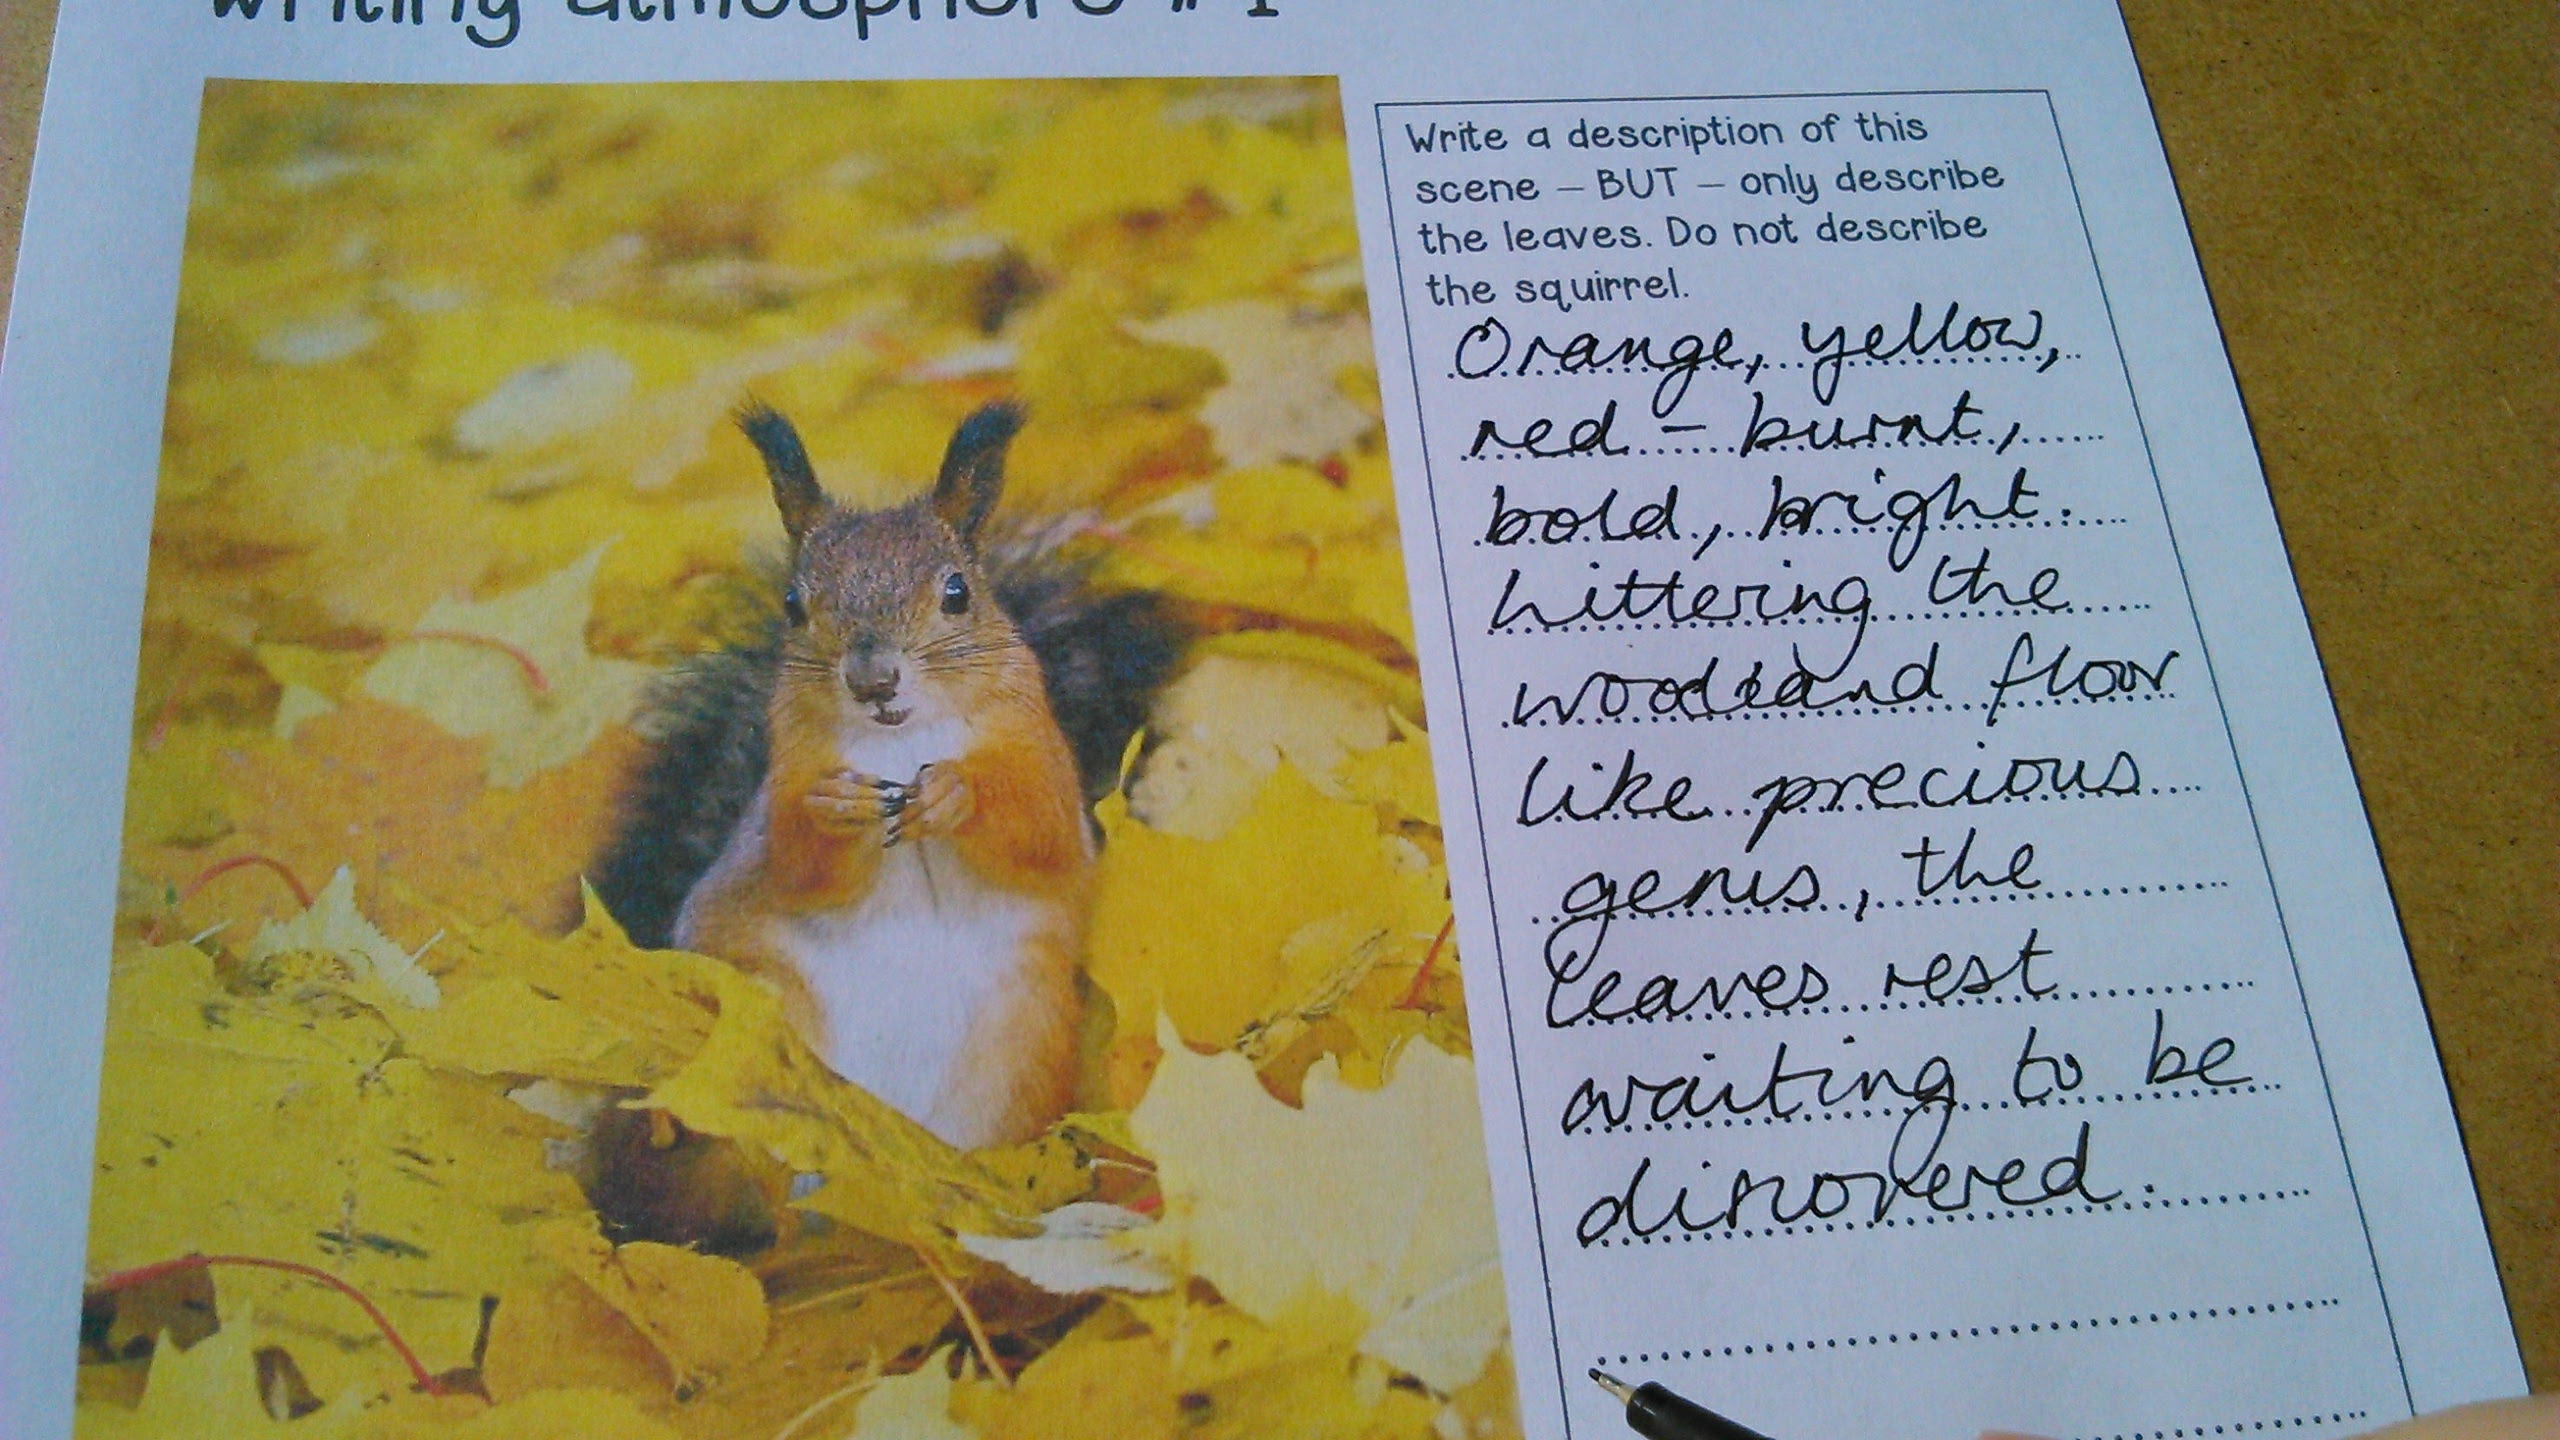 writing atmosphere # 1
Write a description of this
scene – BUT – only describe
the leaves. Do not describe
the squirrel.
Orange, yellow,
red – burnt,
bold, bright.
Littering the
woodland floor
like precious
gems, the
leaves rest
waiting to be
discovered.